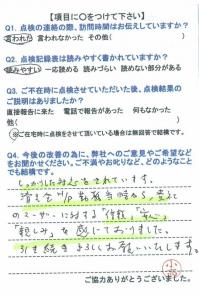 【項目に○をつけて下さい】
Q1. 点検の連絡の際、訪問時間はお伝えしていますか?
言われた 言われなかった その他( )
Q2. 点検記録表は読みやすく書かれていますか?
読みやすい 一応読める 読みづらい 読めない部分がある
Q3. ご不在時に点検させていただいた後、点検結果の
ご説明はありましたか?
直接報告に来た 電話で報告があった 何もなかった
他( )
※ご在宅時に点検をさせて頂いている場合は無回答で結構です。
Q4. 今後の改善の為に、弊社へのご意見やご希望など
をお聞かせください。ご不満やお叱りなど、どのようなこと
でも結構です。
しっかりした点検をされています。
のメーカーに対する「信頼」「安心」
「親しみ」を感じております。
引き続きよろしくお願いいたします。
ご協力ありがとうございました。